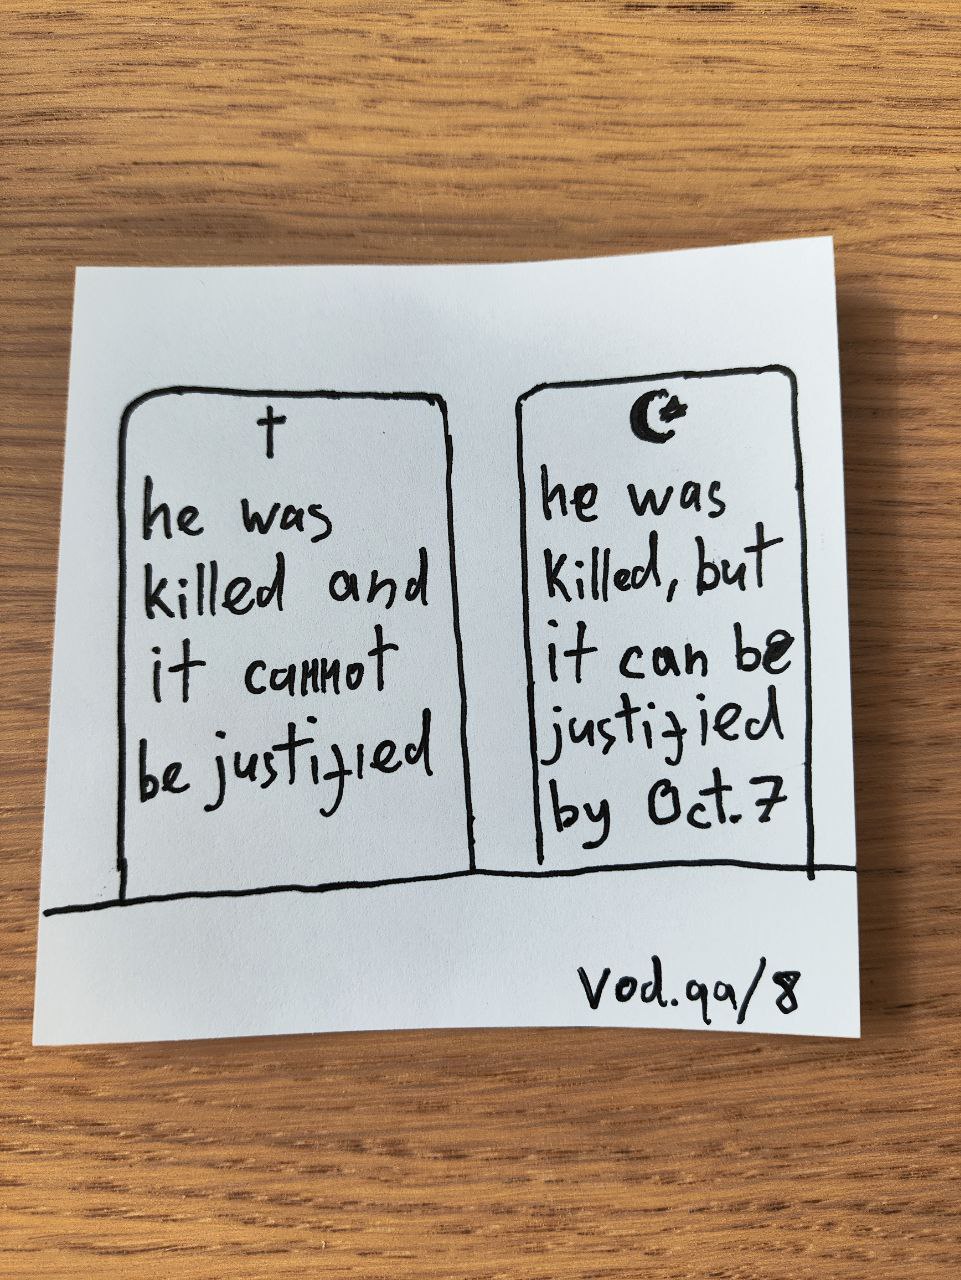 he was
killed and
it cannot
be justified
he was
killed, but
it can be
justified
by Oct. 7
Vod.qa/8